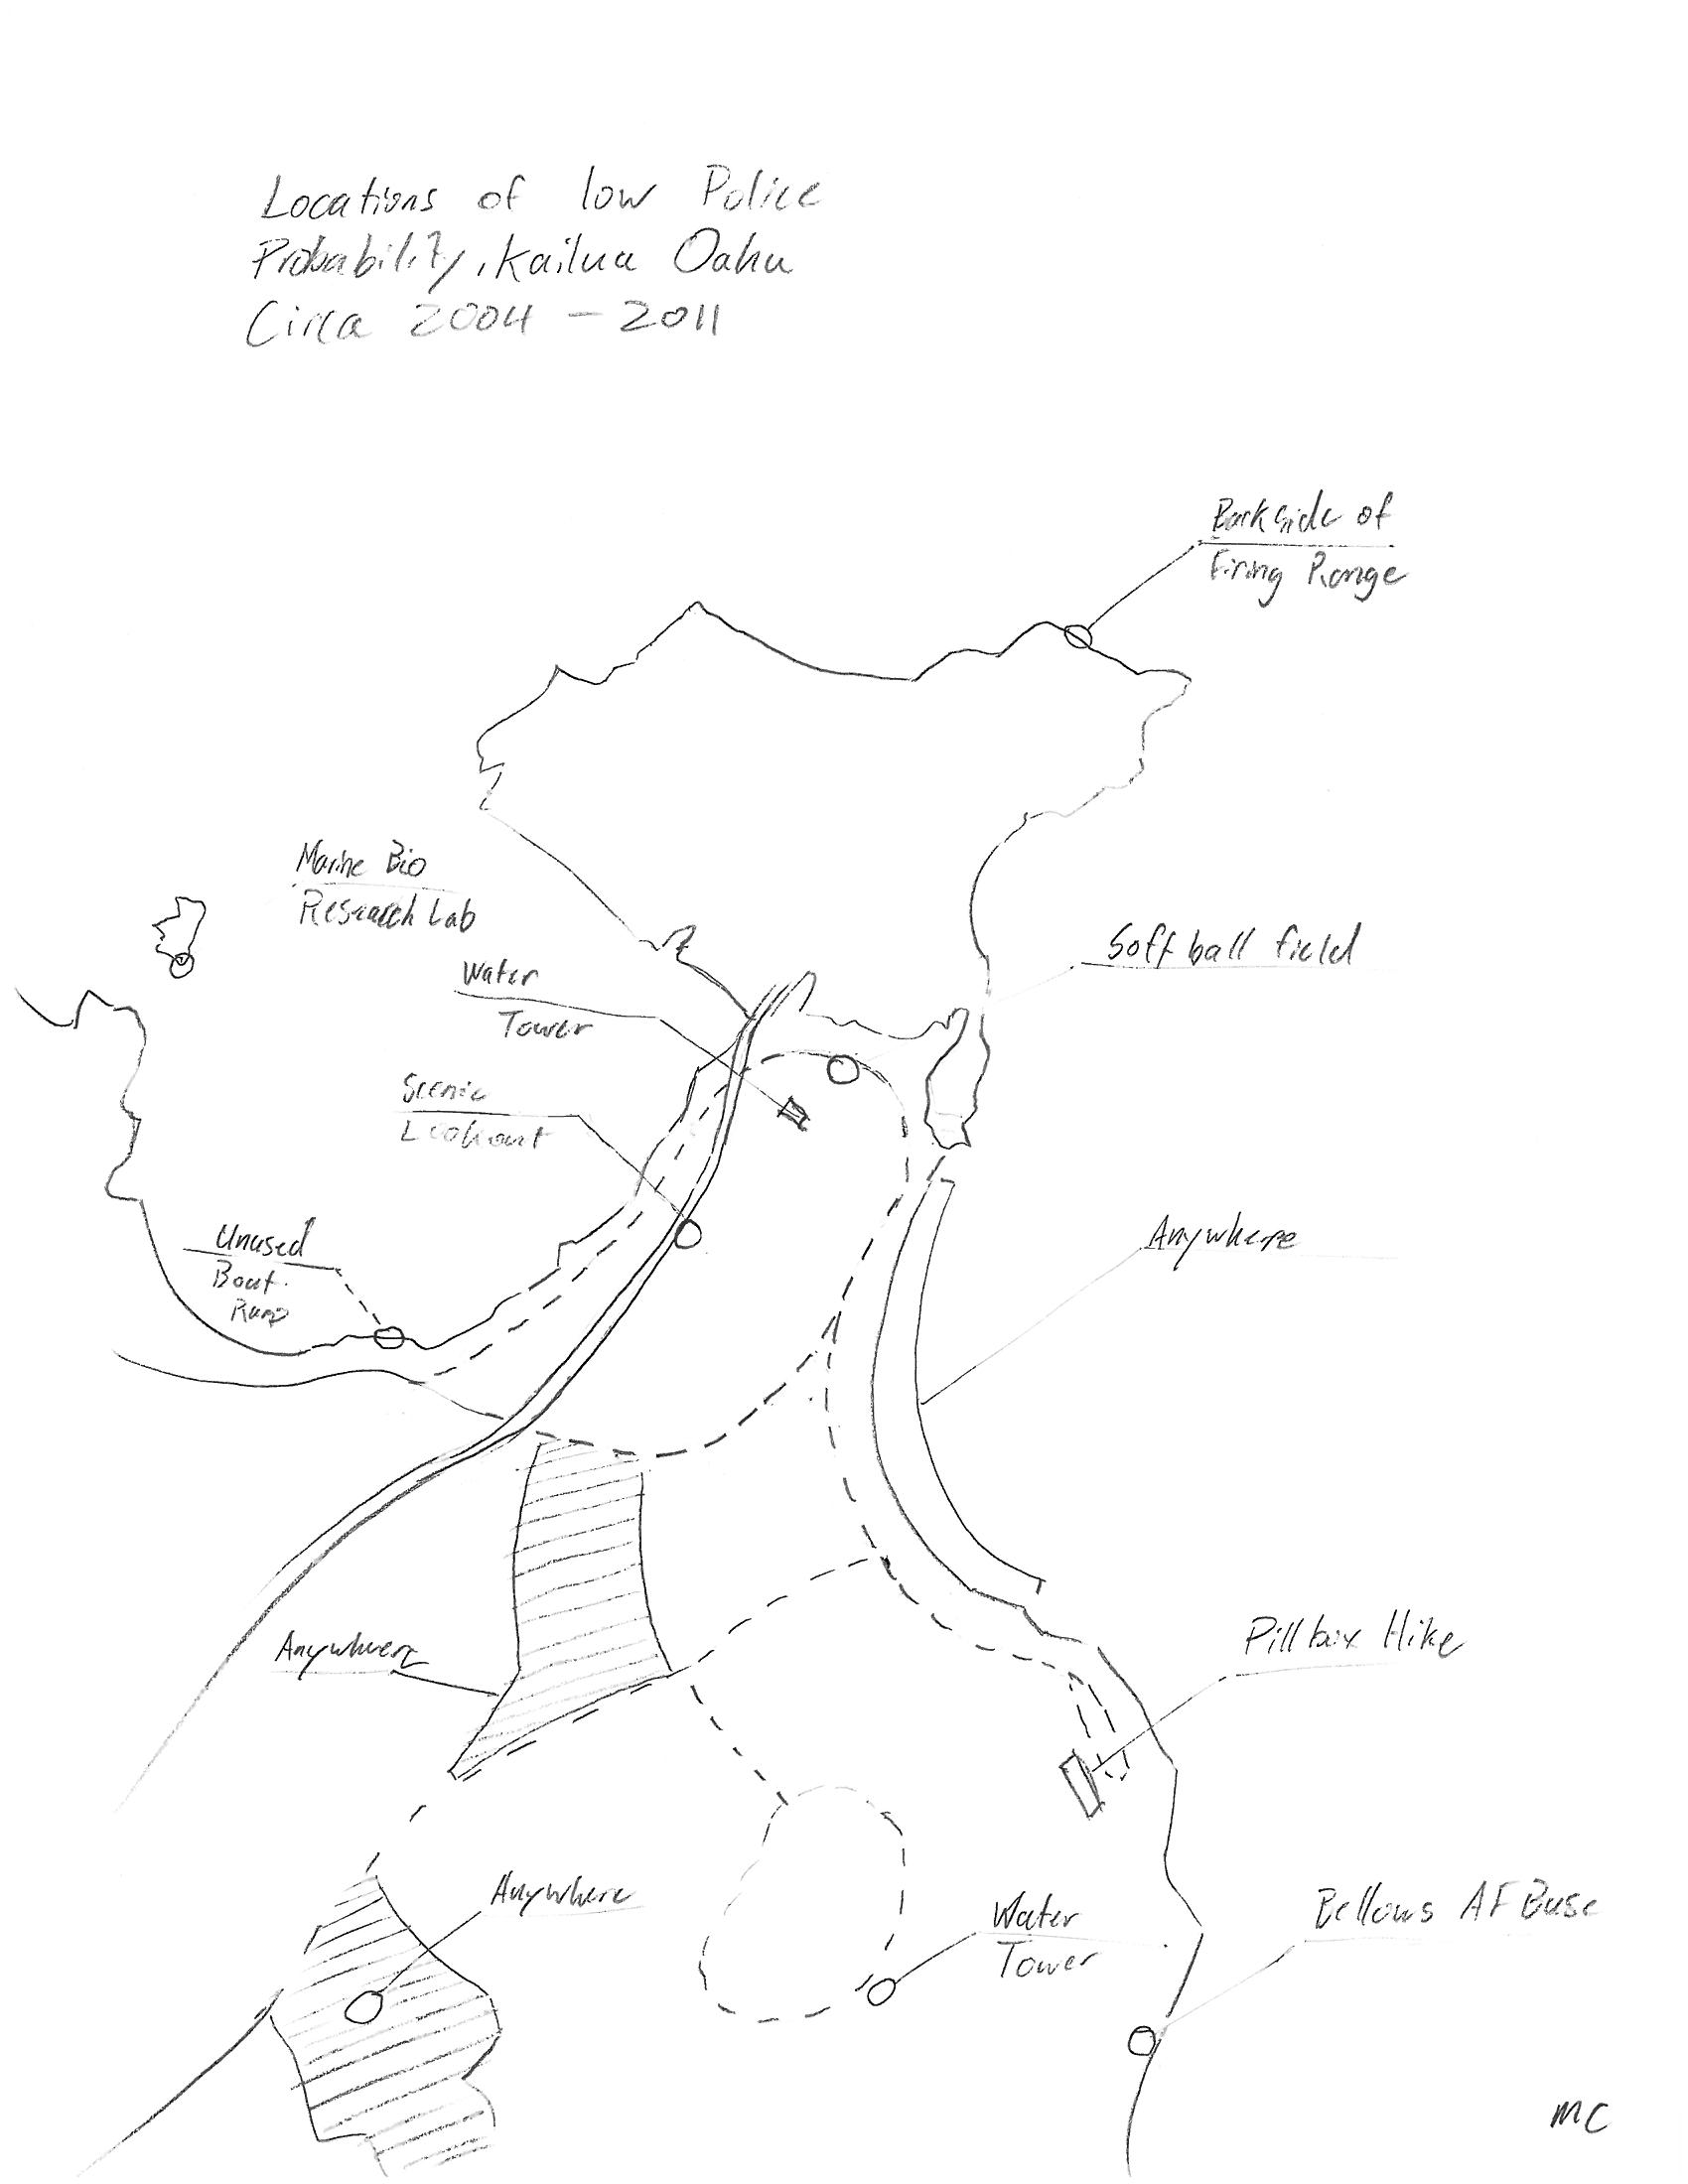 Locations of low Police
Probability, Kailua Oahu
Circa 2004 - 2011
Backside of
Firing Range
Marine Bio
Research Lab
Softball field
Water
Tower
Scenic
Lookout
Unused
Boat
Ramp
Anywhere
Anywhere
Pillbox Hike
Anywhere
Water
Tower
Bellows AF Base
MC